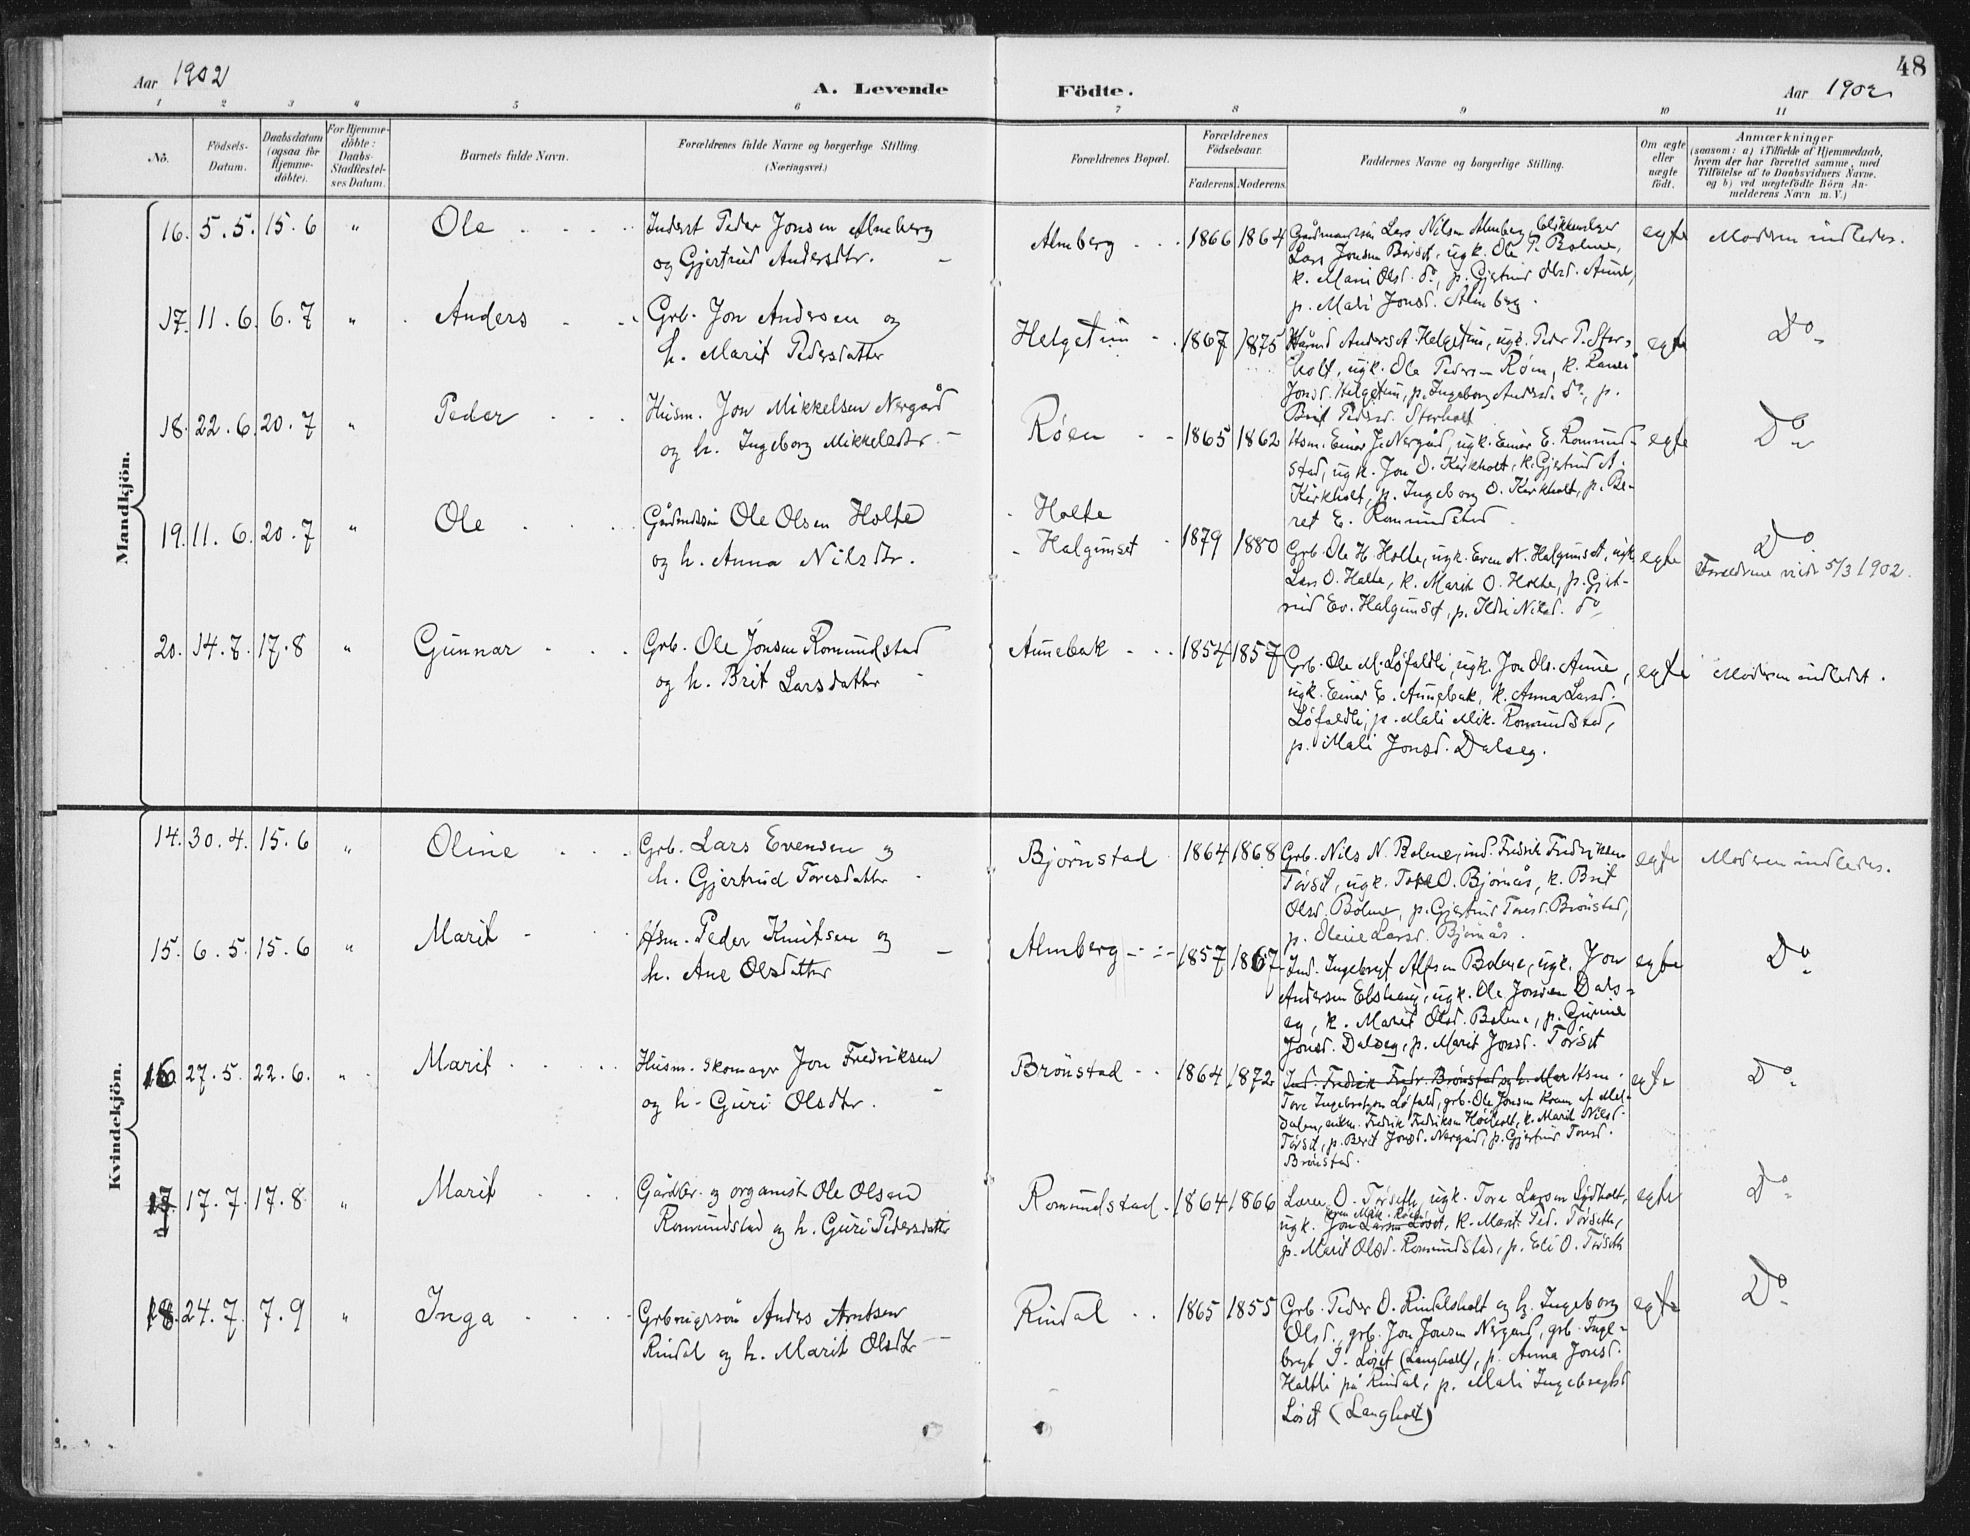 48
Aar 1902
A. Levende Födte.
Aar 1902
1 2 3 4 5 6 7 8 9 10 11
No.
Födsels-
Datum.
Daabsdatum
(ogsaa for
Hjemme-
döbte).
For Hjemme-
döbte:
Daabs-
Stadfæstel-
ses Datum.
Barnets fulde Navn.
Forældrenes fulde Navne og borgerlige Stilling.
(Næringsvei.)
Forældrenes Bopæl.
Forældrenes
Födselsaar.
Faderens. Moderens.
Faddernes Navne og borgerlige Stilling.
Om ægte
eller
uægte
födt.
Anmærkninger
(saasom: a) i Tilfælde af Hjemmedaab,
hvem der har forrettet samme, med
Tilföielse af to Daabsvidners Navne.
og b) ved uægtefödte Börn An-
melderens Navn m. V.)
Mandkjön.
16. 5.5. 15.6 " Ole
Inderst Peder Jonsen Almberg
og Gjertrud Andersdtr.
Almberg 1866 1864
Gårdmandssön Lars Nilsen Almberg, blikkenslager
Lars Jonsen Børset, ugk. Ole P. Bolme,
k. Marit Olsd. do, p. Gjertrud Olsd. Aune,
p. Mali Jonsd. Almberg.
egte Moderen indledet.
17. 11.6. 6.7 " Anders
Grb. Jon Andersen og
h. Marit Pedersdatter
Helgetun 1867 1875
Anders A. Helgetun, ugk. Peder P. Stor-
holt, ugk. Ole Pedersen Røen, k.
Jonsd. Helgetun, p. Ingeborg Andersd. do, p.
Brit Pedersd. Storholt
egte Do
18. 22.6. 20.7 " Peder
Husm. Jon Mikkelsen Nergård
og h. Ingeborg Mikkelsdtr.
Røen 1865 1862
Hsm. Einar J. Nergård, ugk. Einar E. Romund-
stad, ugk. Jon O. Kirkholt, k. Gjertrud A.
Kirkholt, p. Ingeborg O. Kirkholt, p. Be-
ret E. Romundstad.
egte Do
19. 11.6. 20.7 " Ole
Gårdmdssön Ole Olsen Holte
og h. Anna Nilsdtr.
Holte
Halgunset 1879 1880
Grb. Ole H. Holte, ugk. Even N. Halgunset, ugk.
Lars O. Holte, k. Marit O. Holte, p. Gjert-
rud Ev. Halgunset, p. Ildri Nilsd. do
egte Do
Forældrene viede 5/3 1902.
20. 14.7. 17.8 " Gunnar
Grb. Ole Jonsen Romundstad
og h. Brit Larsdatter
Aunebak 1854 1857
Grb. Ole M. Løfaldli, ugk. Jon Ols. Aune,
ugk. Einar E. Aunebak, k. Anna Larsd.
Løfaldli, p. Mali Mik. Romundstad,
p. Mali Jonsd. Dalseg.
egte Moderen indledet.
Kvindekjön.
14. 30.4. 15.6 " Oline
Grb. Lars Evensen og
h. Gjertrud Toresdatter
Bjørnstad 1864 1868
Grb. Nils N. Bolme, ind. Fredrik Fredriksen
Tørset, ugk. Tore O. Bjørnås, k. Brit
Olsd. Bolme, p. Gjertrud Toresd. Brønstad,
p. Oline Larsd. Bjørnås.
egte Moderen indledes.
15. 6.5. 15.6 " Marit
Hsm. Peder Knutsen og
h. Ane Olsdatter
Almberg 1857 1867
Ind. Ingebrigt Alfsen Bolme, ugk. Jon
Andersen Elshaug, ugk. Ole Jonsen Dals-
eg, k. Marit Olsd. Bolme, p. Gunne
Jonsd. Dalseg, p. Marit Jonsd. Tørset
egte Do
16 27.5. 22.6. " Marit
Husm. skomager Jon Fredriksen
og h. Guri Olsdtr.
Brönstad 1864 1872
Ind. Fredrik Fredr. Brønstad og h. Mar Hsm.
Tore Ingebrigtsen Løfald, grb. Ole Jonsen Kram af Mel-
dalen, Fredrik Fredriksen Høiholt, k. Marit Nilsd.
Tørset, p. Berit Jonsd. Nergård, p. Gjertrud Toresd.
Brønstad.
egte Do
17 17.7. 17.8 " Marit
Gårdbr. og organist Ole Olsen
Romundstad og h. Guri Pedersdatter
Romundstad 1864 1866
O. Tørseth, ugk. Tore Larsen Sydholt,
Even Mik. Røen
ugk. Jon Larsen Løset, k. Marit Ped. Tørseth,
p. Marit Olsd. Romundstad, p. Eli O. Tørseth
egte Do
18. 24.7. 7.9 " Inga
Grbrugerssön Anders Arntsen
Rindal og h. Marit Olsdtr
Rindal 1865 1855
Grb. Peder O. Rindalsholt og h. Ingeborg
Olsd., grb. Jon Jonsen Nergard, grb. Inge-
brigt I. Løset (Langholt), p. Anna Jonsd.
Holtli på Rindal, p. Mali Ingebrigtsd
Løset (Langholt)
egte Do